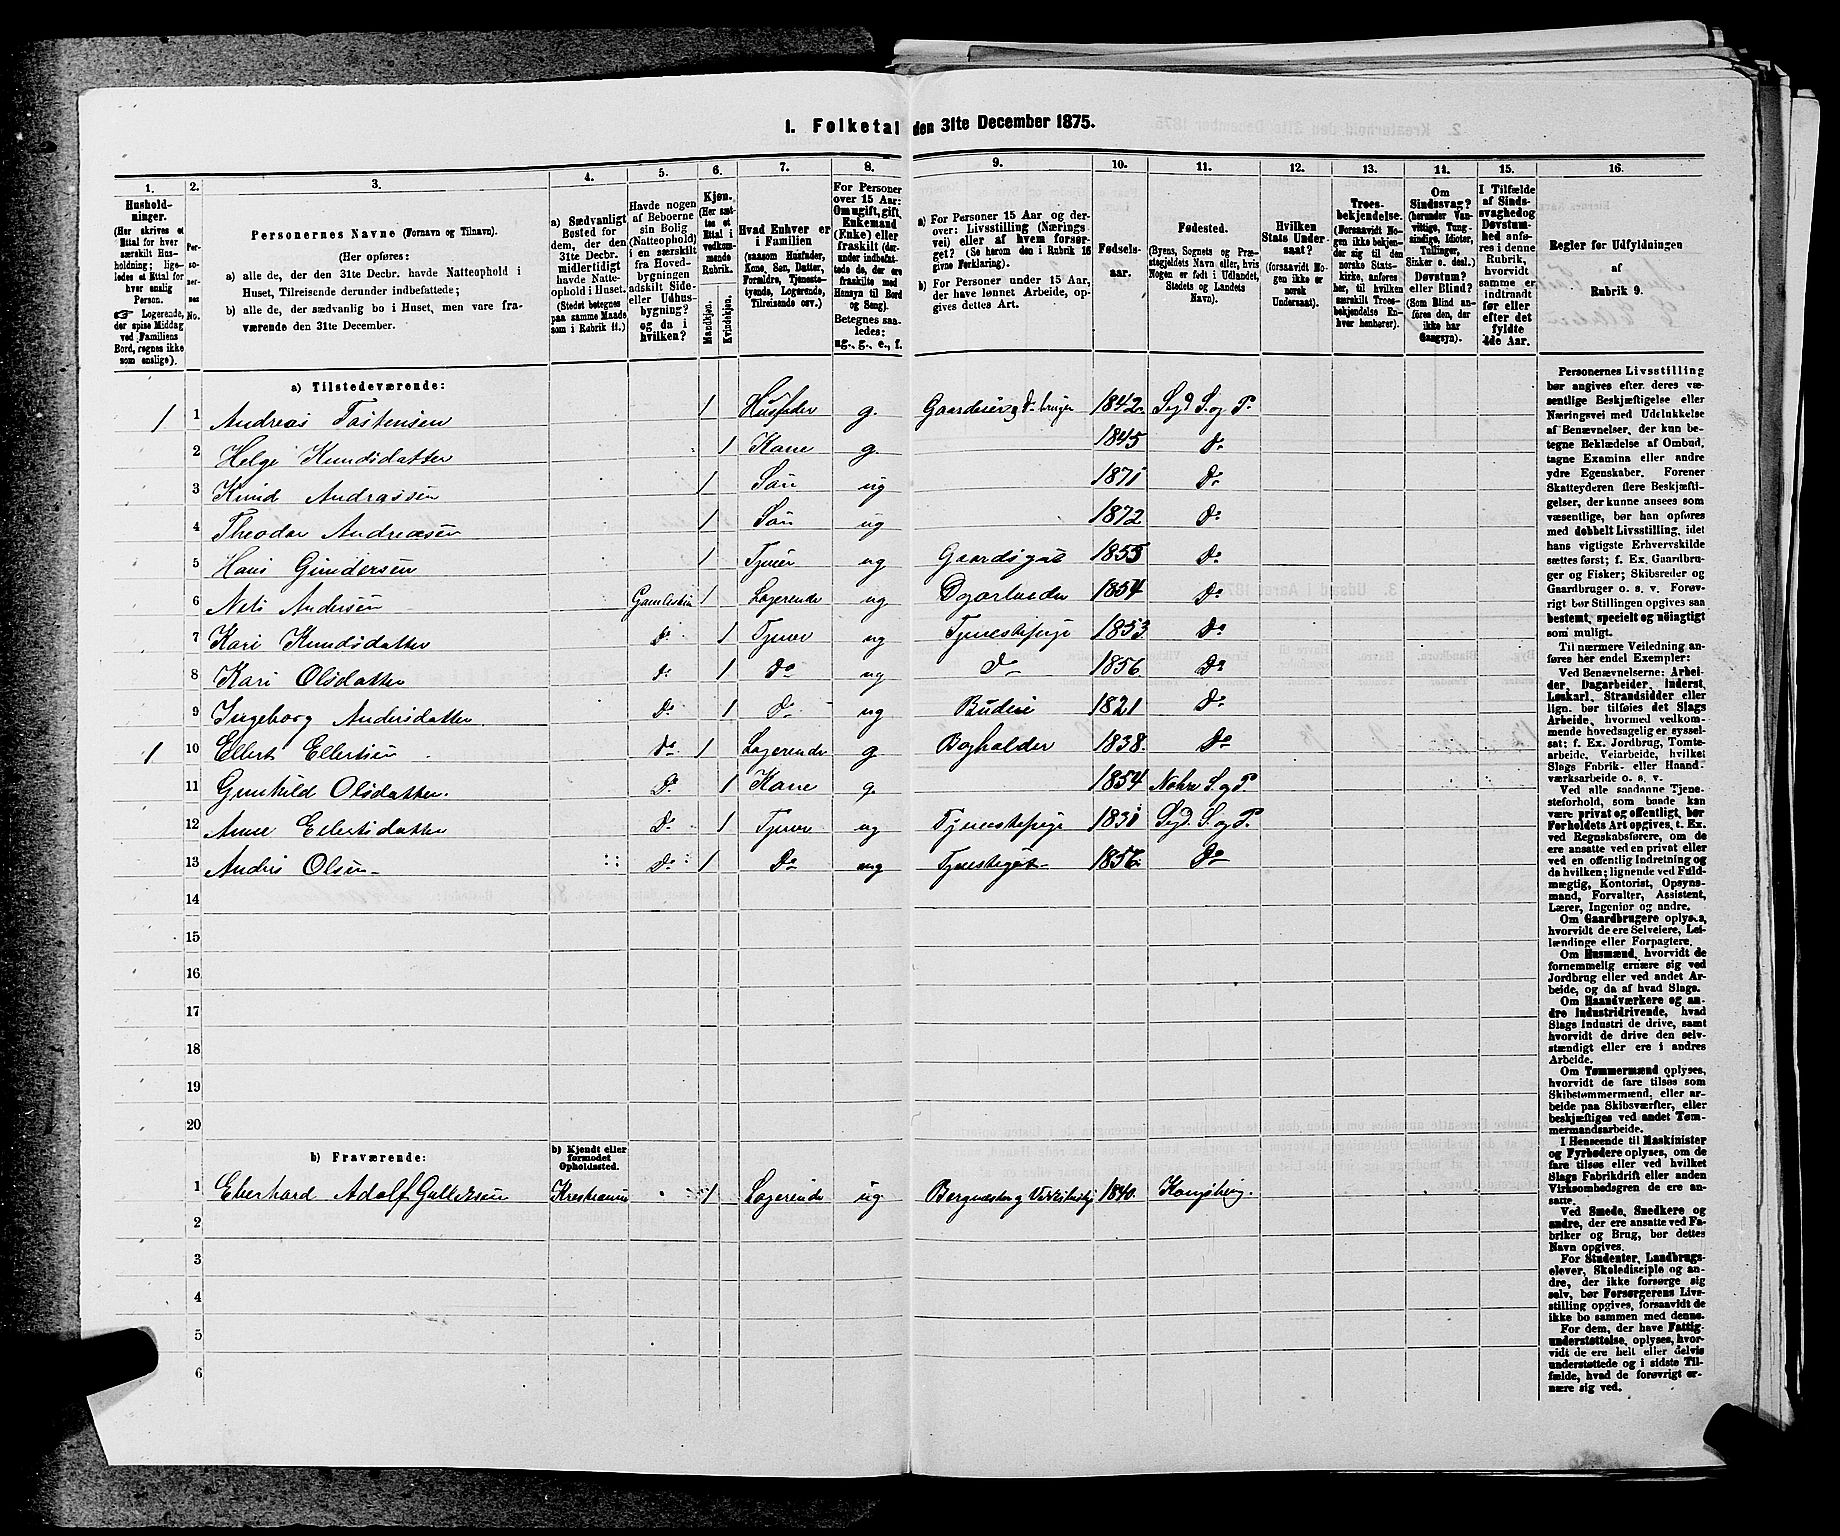 1. Folketal den 31te December 1875.
1. 2. 3. 4. 5. 6. 7. 8. 9. 10. 11. 12. 13. 14. 15. 16.
Hushold-
ninger.
(Her skrives et
Ettal for hver
særskilt Hus-
holdning; lige-
ledes et Ettal for
hver enslig
Person.
Logerende,
der spise Middag
ved Familiens
Bord, regnes ikke
som enslige).
Per-
so-
ner-
nes
No.
Personernes Navne (Fornavn og Tilnavn).
(Her opføres:
a) alle de, der den 31te Decbr. havde Natteophold i
Huset, Tilreisende derunder indbefattede;
b) alle de, der sædvanlig bo i Huset, men vare fra-
værende den 31te December.
a) Sædvanligt
Bosted for
dem, der den
31te Decbr.
midlertidigt
havde Natte-
ophold i Huset.
(Stedet betegnes
paa samme Maade
som i Rubrik 11.)
Havde nogen
af Beboerne
sin Bolig
(Natteophold)
i en særskilt
fra Hoved-
bygningen
adskilt Side-
eller Udhus-
bygning?
og da i
hvilken?
Kjøn.
(Her sæt-
tes et
Ettal i
vedkom-
mende
Rubrik.
Mandkjøn.
Kvindekjøn.
Hvad Enhver er
i Familien
(saasom Husfader,
Kone, Søn, Datter,
Forældre, Tjeneste-
tyende, Logerende,
Tilreisende osv.)
For Personer
over 15 Aar:
Om ugift, gift,
Enkemand
(Enke) eller
fraskilt (der-
under indbefat-
tede de, der ere
fraskilte med
Hensyn til Bord
og Seng).
Betegnes saa-
ledes:
ug., g., e., f.
a) For Personer 15 Aar og der-
over: Livsstilling (Nærings-
vei) eller af hvem forsør-
get? (Se herom den i Rubrik 16
givne Forklaring).
b) For Personer under 15 Aar,
der have lønnet Arbeide, op-
gives dettes Art.
Fødsels-
aar.
Fødested.
(Byens, Sognets og Præ-
stegjeldets Navn eller, hvis
Nogen er født i Udlandet,
Stedets og Landets
Navn).
Hvilken
Stats Under-
saat?
(forsaavidt No-
gen ikke er
norsk
Undersaat).
Troes-
bekjendelse.
(Forsaavidt No-
gen ikke bekjen-
der sig til den
norske Stats-
kirke, anføres
her, til hvilken
særskilt Troes-
bekjendelse En-
hver henhører).
Om
Sindssvag?
(herunder Van-
vittige, Tung-
sindige, Idioter,
Tullinger,
Sinker o. desl.)
Døvstum?
eller Blind?
(Som Blind an-
føres den, der
ikke har
Gangsyn).
I Tilfælde
af Sinds-
svaghed og
Døvstum-
hed anfø-
res i denne
Rubrik,
hvorvidt
samme er
indtraadt
før eller
efter det
fyldte
4de Aar.
Regler for Udfyldningen
af
Rubrik 9.
a) Tilstedeværende:
1 1 Andreas Tostensen 1 Husfader g. Gaardeier og Do bruger 1842 Sigd. S. og P.
2 Helge Knudsdatter 1 Kone g. 1845 Do
3 Knud Andreassen 1 Søn ug 1871 Do
4 Theodor Andreasen 1 Søn ug 1872 Do
5 Hans Gundersen 1 Tjener ug Gaardsgut 1855 Do
6 Nels Andersen 1 Logerende ug Dagarbeider 1854 Do
7 Kari Knudsdatter Do 1 Tjener ug Tjenestepige 1853 Do
8 Kari Olsdatter Do 1 Do ug Do 1856 Do
9 Ingeborg Andersdatter Do 1 Do ug Budeie 1821 Do
1 10 Ellert Ellertsen Do 1 Logerende g Bogholder 1838 Do
11 Gunhild Olsdatter. Do 1 Kone g. 1854 S. og P.
12 Anne Ellertsdatter Do 1 Tjener ug Tjenestepige 1831 Sigd. S. og P.
13 Anders Olsen Do 1 Do ug Tjenestegut 1856 Do
14
15
16
17
18
19
20
b) Fraværende:
b) Kjendt eller
formodet
Opholdssted.
1 Eberhard Adolf Gullesen 1 Logerende ug 1840 Kongsberg.
2
3
4
5
6
Personernes Livsstilling
bør angives efter deres væ-
sentlige Beskjæftigelse eller
Næringsvei med Udelukkelse
af Benævnelser, der kun be-
tegne Beklædelse af Ombud,
tagne Examina eller andre
ydre Egenskaber. Forener
Skatteyderen flere Beskjæfti-
gelser, der kunne ansees som
væsentlige, bør han opføres
med dobbelt Livsstilling, idet
hans vigtigste Erhvervskilde
sættes først; f. Ex. Gaardbru-
ger og Fisker; Skibsreder og
Gaardbruger o. s. v. Forøv-
rigt bør Stillingen opgives saa
bestemt, specielt og nøiagtigt
som muligt.
Til nærmere Veiledning an-
føres her endel Exempler:
Ved Benævnelserne: Arbei-
der, Dagarbeider, Inderst,
Løskarl, Strandsidder eller
lign. bør tilføies det Slags
Arbeide, hvormed vedkom-
mende hovedsagelig er syssel-
sat; f. Ex. Jordbrug, Tomte-
arbeide, Veiarbeide, hvilket
Slags Fabrik- eller Haand-
værksarbeide o. s. v.
Ved alle saadanne Tjene-
steforhold, som baade kan
være privat og offentligt, bør
Forholdets Art opgives, t. Ex.
ved Regnskabsførere, om de
ere ansatte ved en privat eller
ved en offentlig Indretning og
da hvilken; lignende ved Fuld-
mægtig, Kontorist, Opsyns-
mand, Forvalter, Assistent,
Lærer, Ingeniør og andre.
Om Gaardbrugere oplyses,
hvorvidt de ere Selveiere, Lei-
lændinge eller Forpagtere.
Om Husmænd, hvorvidt de
fornemmelig ernære sig ved
Jordbrug eller ved andet Ar-
beide, og da af hvad Slags.
Om Haandværkere og an-
dre Industridrivende, hvad
Slags Industri de drive, samt
hvorvidt de drive den selv-
stændigt eller ere i andres
Arbeide.
Om Tømmermænd oplyses,
hvorvidt de fare tilsøs som
Skibstømmermænd, eller ar-
beide paa Skibsværfter, eller
beskjæftiges ved andet Tøm-
mermandsarbeide.
I Henseende til Maskinister
og Fyrbødere oplyses, om de
fare tilsøs eller ved hvilket
Slags Fabrikdrift eller anden
Virksomhedsgren de ere an-
satte.
Ved Smede, Snedkere og
andre, der ere ansatte ved Fa-
briker og Brug, bør dettes
Navn opgives.
For Studenter, Landbrugs-
elever, Skoledisciple og an-
dre, der ikke forsørge sig
selv, bør Forsørgerens Livs-
stilling opgives, forsaavidt de
ikke bo sammen med denne.
For dem, der have Fattig-
understøttelse, oplyses, hvor-
vidt de ere helt eller delvis
understøttede og i sidste Til-
fælde, hvad de forøvrigt er-
nære sig ved.